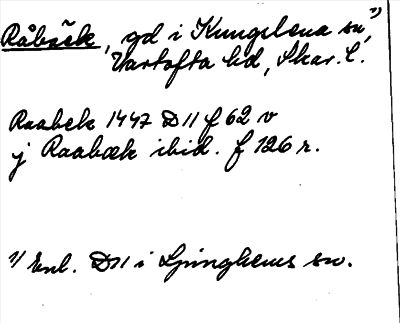 Råbäck, gd i Kungslena sn, 1)
Vartofta hd, Skar. l.
Raabek 1447 D 11 f 62 v
j Raabæk ibid. f 126 r.
1) Enl. D11 i Ljunghems sn.